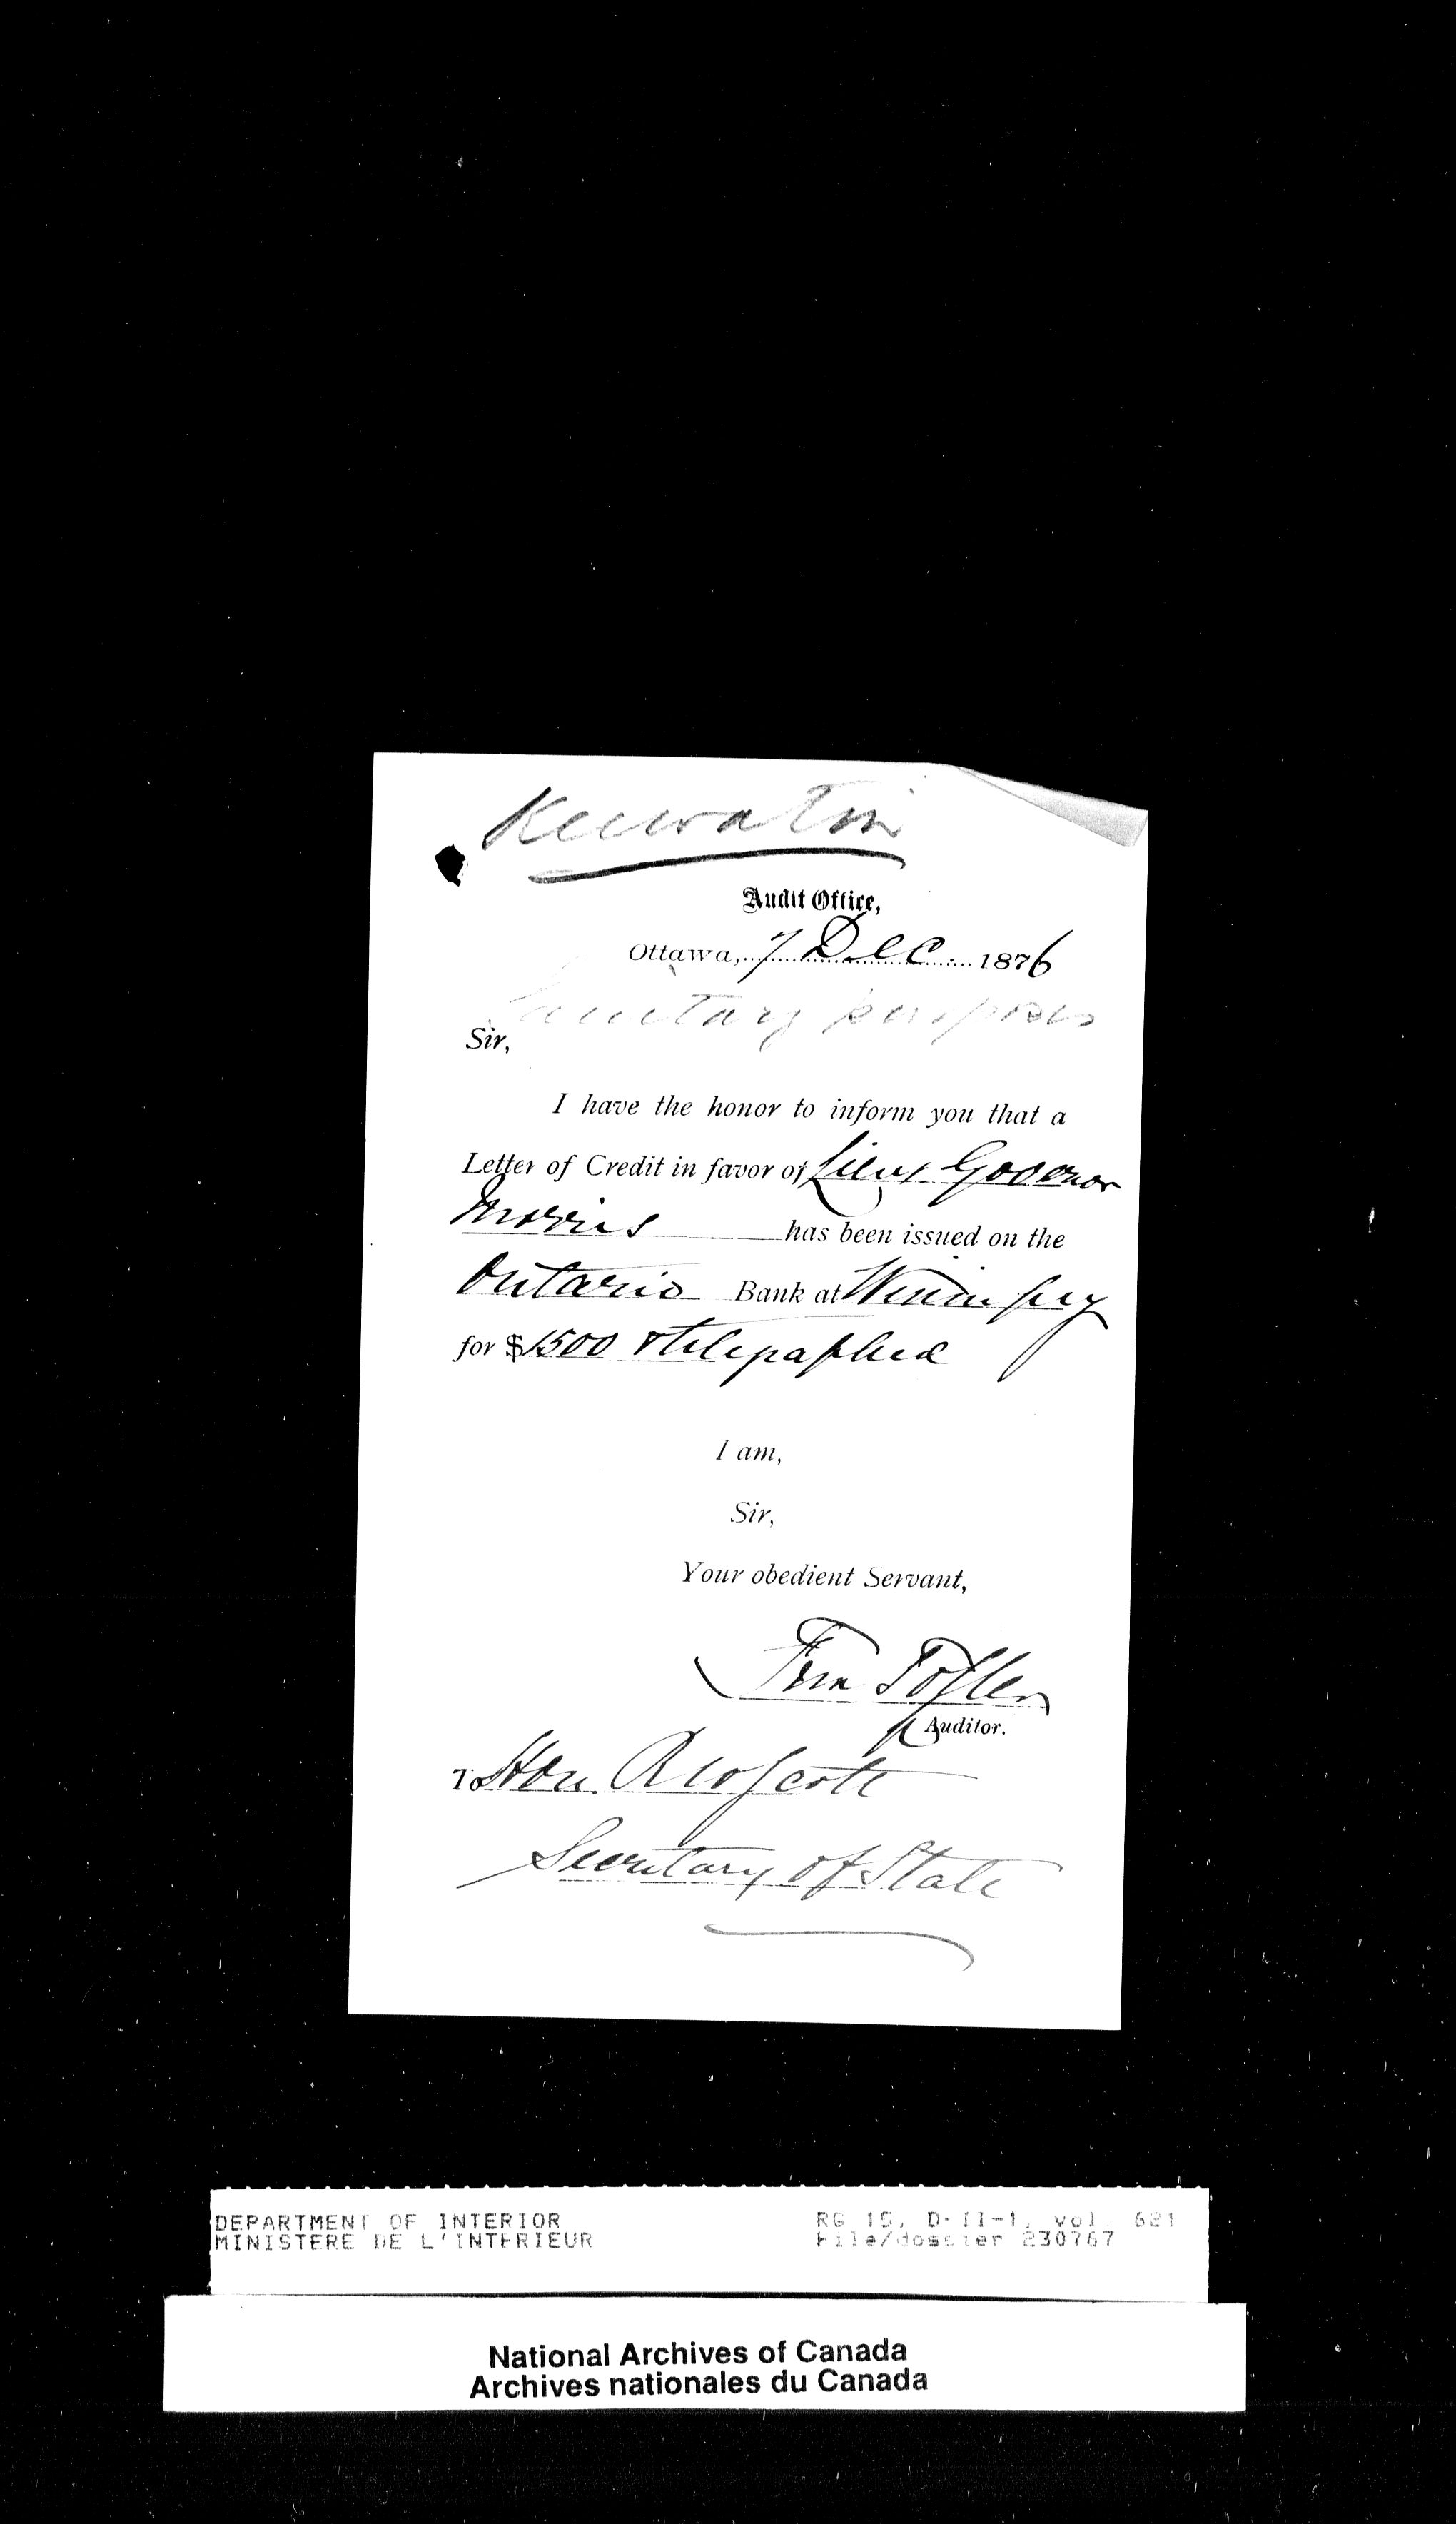 Keewatin
Audit Office,
Ottawa, 7 Dec. 1876
Sanitary purposes
Sir,
I have the honor to inform you that a
Letter of Credit in favor of Lieut Governor
Morris has been issued on the
Ontario Bank at Winnipeg
for $1500 & telegraphed
I am,
Sir,
Your obedient Servant,
Auditor.
To Hon. R W Scott
Secretary of State
DEPARTMENT OF INTERIOR RG 15, D-II-1, vol. 621
MINISTERE DE L'INTERIEUR File/dossier 230767
National Archives of Canada
Archives nationales du Canada